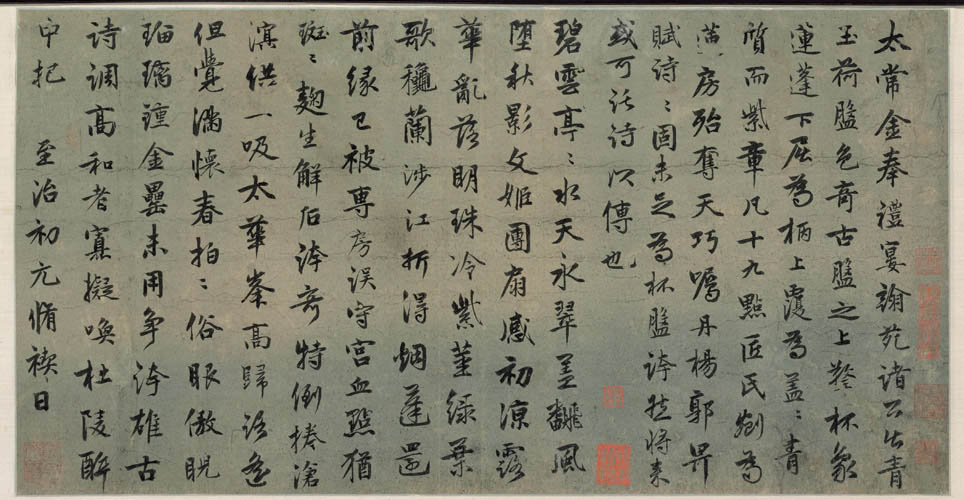 太常金奉禮宴翰苑諸公出青
玉荷盤色奇古盤之上擎杯象
蓮蓬下屈為柄上覆為蓋々青
質而紫章凡十九點匠氏剜為
蓮房殆奪天巧囑丹楊郭畀
賦詩々固未足為杯盤誇然將來
或可託詩以傳也
碧雲亭々水天永翠蓋飜風
墮秋影文姬團扇感初涼露
華亂落明珠冷紫莖綠葉
歌穠蘭涉江折得烟蓬還
前緣已被專房誤守宮血點猶
斑々麴生解后誇奇特倒捲滄
溟供一吸太華峯高歸路遙
但覺滿懷春拍々俗眼傲睨
瑠璃鍾金罍未用爭誇雄古
詩調高和者寡擬喚杜陵酹
至治初元脩禊日